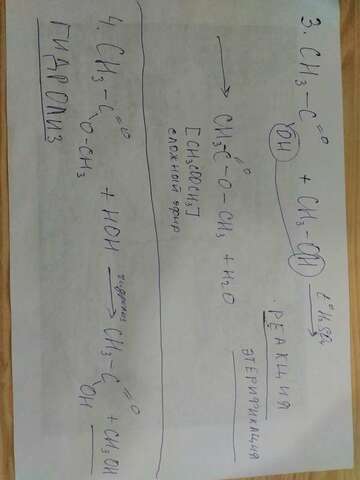 3. CH3 - C =O OH + CH3 - OH t° H2SO4
РЕАКЦИЯ
ЭТЕРИФИКАЦИЯ
→ CH3C =O - O - CH3 + H2O
[CH3COOCH3]
сложный эфир
4. CH3 - C =O O - CH3 + HOH гидролиз → CH3 - C =O OH + CH3OH
ГИДРОЛИЗ